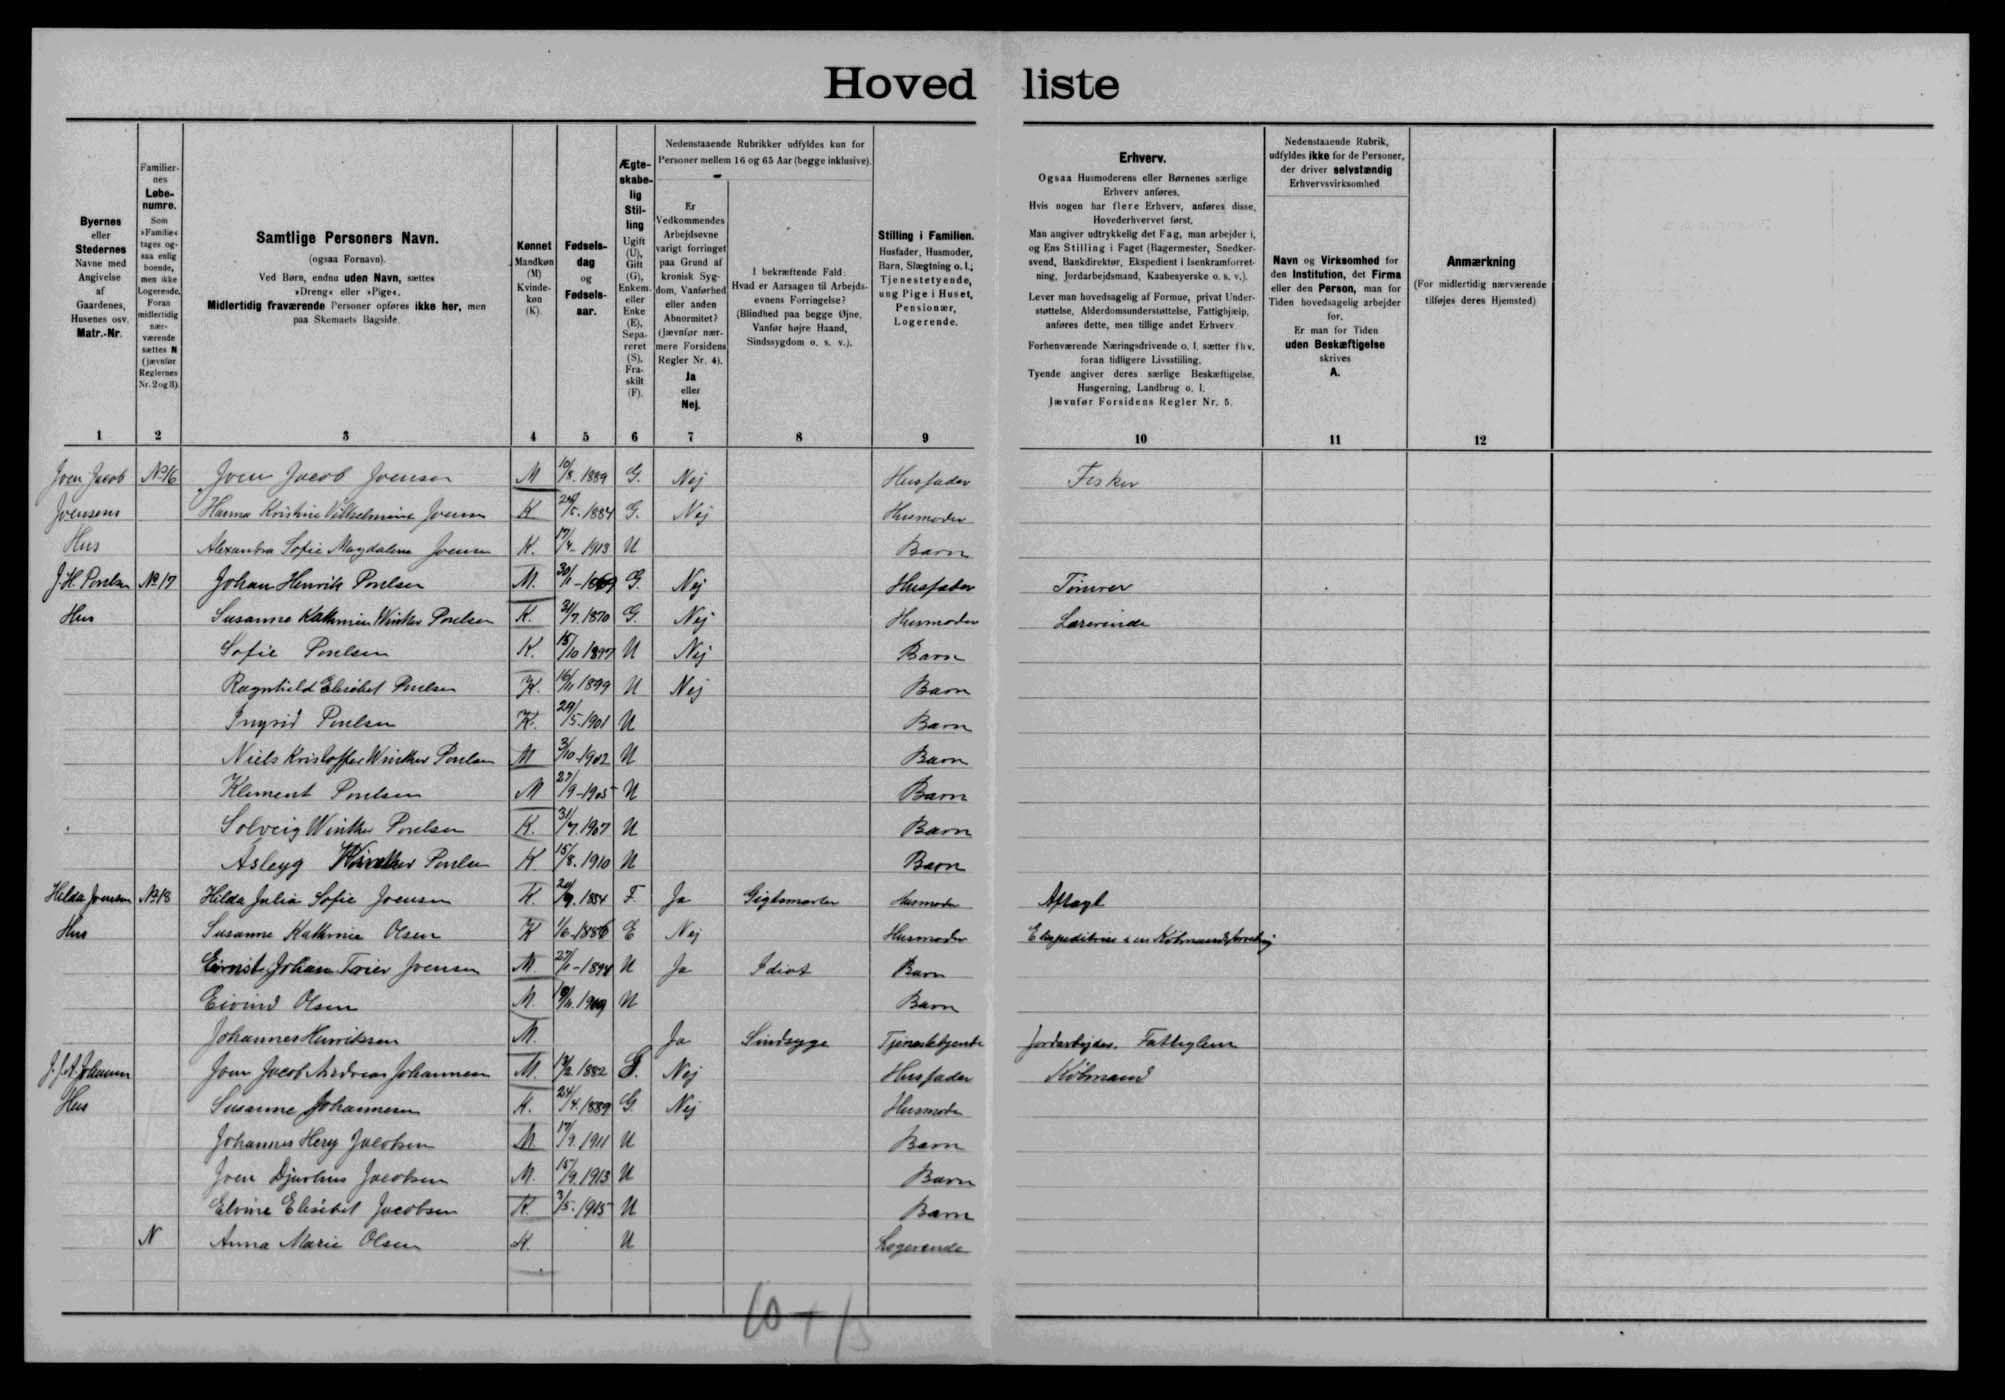 Hovedliste
Byernes eller Stedernes Navne med Angivelse af Gaardenes, Husenes osv. Matr.-Nr.
Familiernes Løbenumre. Som »Familie« tages ogsaa enlig boende, men ikke Logerende. Foran midlertidig nærværende sættes N (jævnfør Reglernes Nr. 2 og 3).
Samtlige Personers Navn. (ogsaa Fornavn). Ved Børn, endnu uden Navn, sættes »Dreng« eller »Pige«. Midlertidig fraværende Personer opføres ikke her, men paa Skemaets Bagside.
Kønnet Mandkøn (M) Kvindekøn (K).
Fødselsdag og Fødselsaar.
Ægteskabelig Stilling Ugift (U), Gift (G), Enkem. eller Enke (E), Separeret (S), Fraskilt (F).
Nedenstaaende Rubrikker udfyldes kun for Personer mellem 16 og 65 Aar (begge inklusive).
Er Vedkommendes Arbejdsevne varigt forringet paa Grund af kronisk Sygdom, Vanførhed eller anden Abnormitet? (Jævnfør nærmere Forsidens Regler Nr. 4). Ja eller Nej.
I bekræftende Fald: Hvad er Aarsagen til Arbejdsevnens Forringelse? (Blindhed paa begge Øjne, Vanfør højre Haand, Sindssygdom o. s. v.).
Stilling i Familien. Husfader, Husmoder, Barn, Slægtning o. l.; Tjenestetyende, ung Pige i Huset, Pensionær, Logerende.
Erhverv.
Ogsaa Husmoderens eller Børnenes særlige Erhverv anføres.
Hvis nogen har flere Erhverv, anføres disse, Hovederhvervet først.
Man angiver udtrykkelig det Fag, man arbejder i, og Ens Stilling i Faget (Bagermester, Snedkersvend, Bankdirektør, Ekspedient i Isenkramforretning, Jordarbejdsmand, Kaabesyerske o. s. v.).
Lever man hovedsagelig af Formue, privat Understøttelse, Alderdomsunderstøttelse, Fattighjælp, anføres dette, men tillige andet Erhverv
Forhenværende Næringsdrivende o. l. sætter fhv. foran tidligere Livsstilling.
Tyende angiver deres særlige Beskæftigelse, Husgerning, Landbrug o. l.
Jævnfør Forsidens Regler Nr. 5.
Nedenstaaende Rubrik, udfyldes ikke for de Personer, der driver selvstændig Erhvervsvirksomhed
Navn og Virksomhed for den Institution, det Firma eller den Person, man for Tiden hovedsagelig arbejder for.
Er man for Tiden uden Beskæftigelse skrives A.
Anmærkning (For midlertidig nærværende tilføjes deres Hjemsted)
1 2 3 4 5 6 7 8 9 10 11 12
Joen Jacob No 16 Joen Jacob Joensen M 10/8. 1889 G. Nej Husfader Fisker
Joensens Hanna Kristine Vilhelmine Joensen K /5. 1884 G. Nej Husmoder
Hus Alexandra Sofie Magdalena Joensen K. 17/4- 1913 U Barn
J. H. Poulsen No 17 Johan Henrik Poulsen M. 30/1-1869 G. Nej Husfader Tømrer
Hus Susanne Kathrine Winther Poulsen K. 31/7. 1870 G. Nej Husmoder Lærerinde
Sofie Poulsen K. 15/10 1897 U Nej Barn
Ragnhild Elisabet Poulsen K. 16/11 1899 U Nej Barn
Ingrid Poulsen K. 29/5-1901 U Barn
Niels Kristoffer Winther Poulsen M 3/10-1902 U Barn
Klement Poulsen M 27/9-1905 U Barn
Solveig Winther Poulsen K. 31/7. 1907 U Barn
Asleyg Winther Poulsen K 15/8. 1910 U Barn
Hilda Joensen No 18 Hilda Julia Sofie Joensen K. /9. 1854 F Ja Gigtsmerter Husmoder Aftægt
Hus Susanne Kathrine Olsen K 1/6-1886 E Nej Husmoder Ekspeditrise i en Købmandsforretnig
Ernst Johan Toier Joensen M. 27/1-1894 U Ja Idiot Barn
Eivind Olsen M. 19/11. 1909 U Barn
Johannes Henriksen M. Ja Sindsyge Tjenestetyende Jordarbejder. Fattiglem
J. J. A. Johannesen Joen Jacob Andreas Johannesen M. 1882 G. Nej Husfader Købmand
Hus Susanne Johannesen K. 24/4. 1889 G. Nej Husmoder
Johannes Hery Jacobsen M. 17/9. 1911 U Barn
Joen Djurhus Jacobsen M. 15/9. 1913 U Barn
Elvine Elisabet Jacobsen K. 3/5. 1915 U Barn
N Anna Marie Olsen K. U Logerende
10 + 13